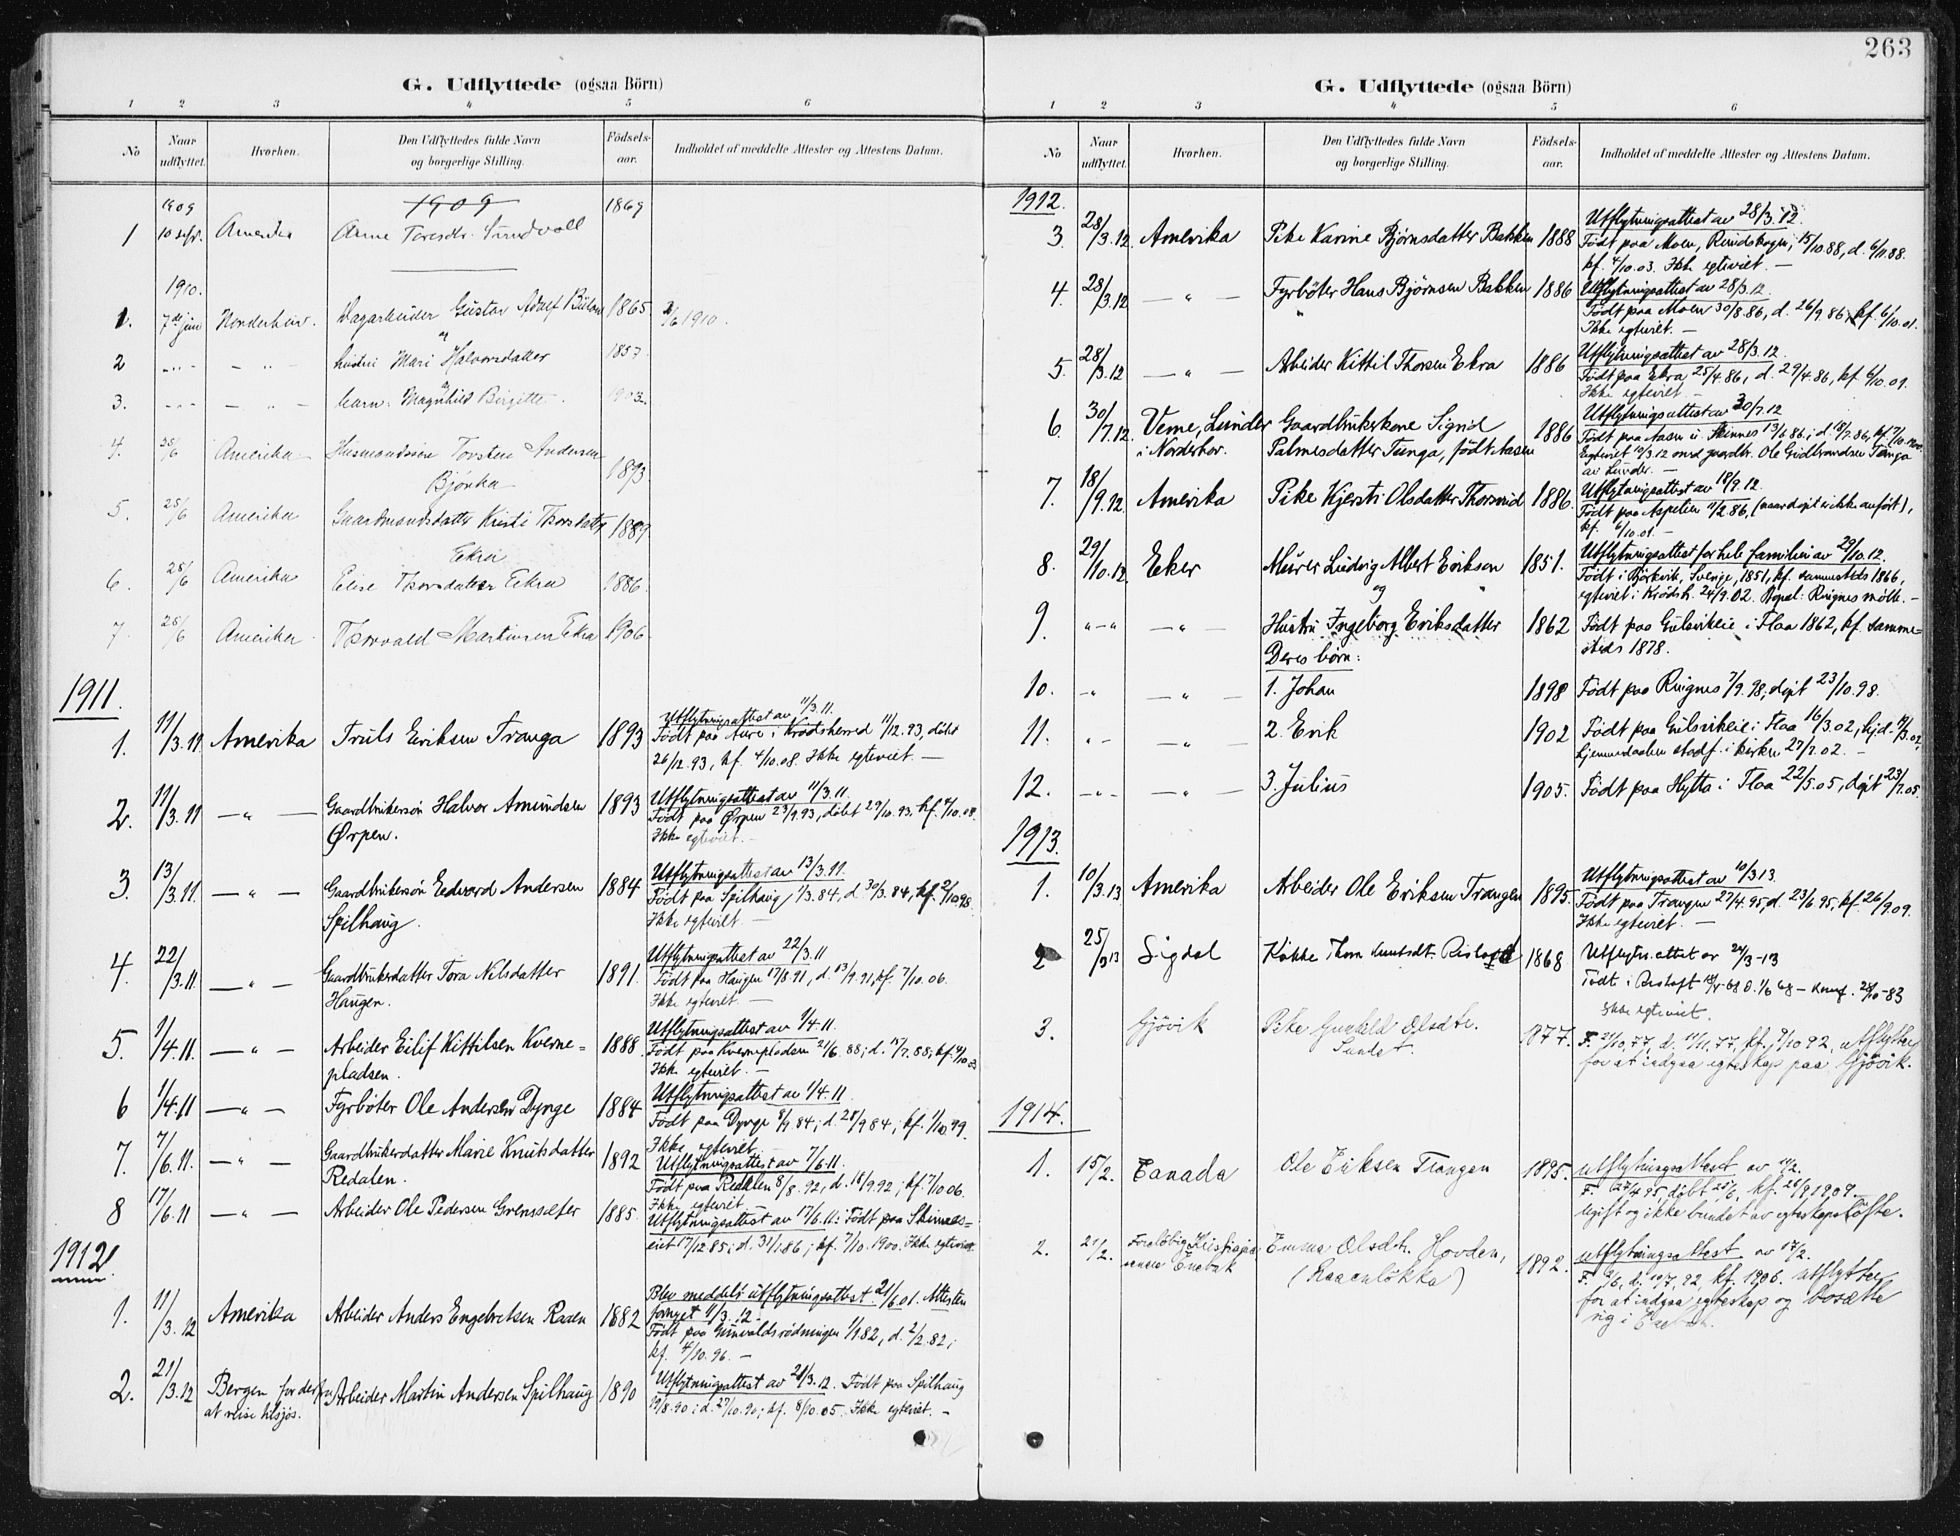 263
G. Udflyttede (ogsaa Börn)
1 2 3 4 5 6
No Naar udflyttet. Hvorhen. Den Udflyttedes fulde Navn og borgerlige Stilling. Födsels-aar. Indholdet af meddelte Attester og Attestens Datum.
1909
1909
1 10 sept. Amerika Anne Toresdr. Sundvoll 1869
1910.
1. 7de juni Nonderhov. Dagarbeider Gustav Adolf Bülow 1865 2/6 1910.
2 -"- - " - hustru Mari Halvorsdatter 1857.
3. -"- - " - barn: Magnhild Birgitte. 1903.
4. 25/6 Amerika Husmandssøn Torsten Andersen
Bjørka 1893
5. 25/6 Amerika Gaardmandsdatter Kristi Thorsdatter 1889
Ekra
6. 25/6 Amerika Elise Thorsdatter Ekra 1886.
7. 25/6 Amerika Thorvald Martinsen Ekra 1906
1911.
1. 11/3.11 Amerika Truls Eriksen Tranga 1893 Utflytningsattest av 11/3.11.
Født paa Aure i Krødsherred 11/12.93, døbt
26/12.93, kf. 4/10.08. Ikke egteviet. —
2. 11/3.11 — " — Gaardbrukersøn Halvor Amundsen 1893 Utflytningsattest av 11/3.11.
Ørpen. Født paa Ørpen 23/9.93, døbt 29/10.93, kf. 4/10.08.
Ikke egteviet. —
3. 13/3.11. — " — Gaardbrukersøn Edvard Andersen 1884 Utflytningsattest av 13/3.11.
Spilhaug. Født paa Spilhaug 1/3.84, d 30/3.84, kf. 2/10.98.
Ikke egteviet. —
4. 22/3.11. — " — Gaardbrukerdatter Tora Nilsdatter 1891. Utflytningsattest av 22/3.11
Haugen. Født paa Haugen 17/8.91, d. 13/9.91, kf. 7/10.06.
Ikke egteviet. —
5. 1/4.11. — " — Arbeider Eilif Kittilsen Kverne= 1888. Utflytningsattest av 1/4.11.
pladsen. Født paa Kvernepladsen 21/6.88; d. 15/7.88; kf. 4/10.03
Ikke egteviet. —
6 1/4.11 — " — Fyrbøter Ole Andersen Dynge 1884 Utflytningsattest av 1/4.11.
Født paa Dynge 8/9.84; d. 28/9 84; kf. 1/10.99.
Ikke egteviet. —
7. 7/6.11. — " — Gaardbrukerdatter Marie Knutsdatter 1892 Utflytningsattest av 7/6.11.
Redalen. Født paa Redalen 8/8.92, d. 18/9.92, kf. 7/10.06.
Ikke egteviet. —
8 17/6.11 — " — Arbeider Ole Pedersen Grensesæter 1885. Utflytningsattest av 17/6.11: Født paa Skinnes=
eiet 17/12.85; d. 31/1.86; kf. 7/10.1900. Ikke egteviet.
1912.
1. 11/3.12 Amerika Arbeider Anders Engebretsen Raaen 1882 Blev meddelt utflytningsattest 21/6.01. Attesten
fornyet 11/3.12.
Født paa Gunvaldsrødningen 1/1 82, d. 2/2.82;
kf. 4/10.96. —
2. 21/3.12 Bergen for derfra Arbeider Martin Andersen Spilhaug 1890 Utflytningsattest av 21/3.12. Født paa Spilhaug
at reise tilsjøs. 19/8.90; d. 27/10.90; kf. 8/10.05. Ikke egteviet. —
G. Udflyttede (ogsaa Börn)
1 2 3 4 5 6
No Naar udflyttet. Hvorhen. Den Udflyttedes fulde Navn og borgerlige Stilling. Födsels-aar. Indholdet af meddelte Attester og Attestens Datum.
1912.
3. 28/3.12 Amerika Pike Karine Bjørnsdatter Bakken 1888 Utflytningsattest av 28/3.12.
Født paa Moen, Rundskogn, 15/10.88, d. 6/11.88.
kf. 4/10.03. Ikke egteviet. —
4. 28/3.12 — " — Fyrbøter Hans Bjørnsen Bakken 1886 Utflytningsattest av 28/3.12
Født paa Moen 30/8.86, d. 26/9 86, kf. 6/10.01.
Ikke egteviet. —
5. 28/3.12 — " — Arbeider Kittil Thorsen Ekra 1886 Utflytningsattest av 28/3.12.
Født paa Ekra 25/4.86, d. 29/4.86, kf. 6/10.01.
Ikke egteviet. —
6. 30/7.12. Veme, Lunder Gaardbrukerkone Sigrid 1886 Utflytningsattest av 30/7.12
i Norderhov. Palmesdatter Tunga, født Aasen Født paa Aasen i Skinnes 13/6 86; d. 18/7.86, kf. 7/10.1900.
Egteviet 12/3.12 med gaardbr. Ole Gudbrandsen Tunga
av Lunder. —
7. 18/9.12. Amerika Pike Kjersti Olsdatter Thorsrud 1886. Utflytningsattest av 18/9.12.
Født paa Aspelien 11/2.86, (naar døpt er ikke anført),
kf. 6/10.01. —
8. 29/10.12 Eker Murer Ludvig Albert Erikson 1851. Utflytningsattest for hele familien av 29/10.12.
og Født i Björkvik, Sverige, 1851, kf. sammesteds 1866,
egteviet i Krødsh. 24/9.02. Bopæl: Ringnes mølle. —
9. " - " — " — Hustru Ingeborg Eriksdatter 1862 Født paa Gulsvikeie i Flaa 1862, kf. samme=
Deres børn: steds 1878.
10. - " — " — 1. Johan 1898 Født paa Ringnes 7/9.98; døpt 23/10.98.
11. " - — " — 2. Erik 1902 Født paa Gulsvikeie i Flaa 16/3.02, hjd. 19/3.02,
hjemmedaaben stadf. i kirken 27/7.02. —
12. - " - — " — 3. Julius 1905. Født paa Hytta i Flaa 22/5.05, døpt 23/7.05.
1913.
1. 10/3.13 Amerika Arbeider Ole Eriksen Trangen 1895. Utflytningsattest av 10/3.13.
Født paa Trangen 27/4.95, d. 23/6.95, kf. 26/9.09.
Ikke egteviet. —
2 25/3 13 Sigdal Kokke Thora Knutsdt. Risloft 1868 Utflytn. attest av 24/3-13
Født i Risloft 18/4-68 D. 1/6 68 — Konf. 28/10-83
Ikke egteviet.
3. Gjøvik Pike Gunhild Olsdtr. 1877. F. 21/10.77, d. 11/11.77, kf. 9/10 92, utflytter
Sundet. for at indgaa egteskap paa Gjøvik.
1914.
1. 15/2. Canada Ole Eriksen Trangen 1895. Utflytningsattest av 14/2.
F. 27/4 95, døbt 23/6, kf. 26/9 1909.
Ugift og ikke bundet av egteskapsløfte.
2. 21/2. Foreløbig Kristiania Emma Olsdtr. Hovden, 1892. Utflytningsattest av 17/2.
senere Enebak (Raaenløkka) F. 9/6, d. 10/7.92, kf. 1906. Utflytter
for at indgaa egteskap og bosætte
sig i Enebak.